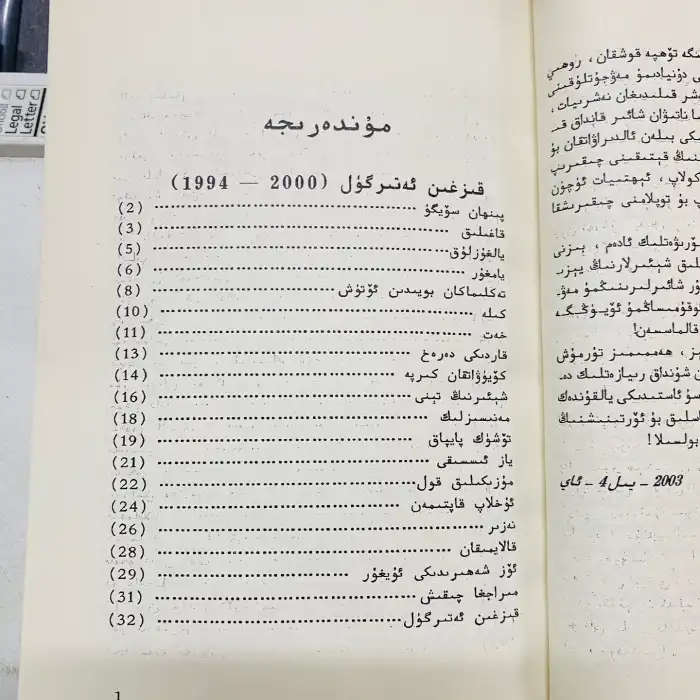 مۇندەرىجە
قىزغىن ئەتىرگۈل (2000 — 1994)
پىنھان سۆيگۈ (2)
قاغىلىق (3)
يالغۇزلۇق (5)
يامغۇر (6)
تەكلىماكان بويىدىن ئۆتۈش (8)
كىلە (10)
خەت (11)
قاردىكى دەرەخ (13)
كۆيۈۋاتقان كىرپە (14)
شېئىرنىڭ تېنى (16)
مەنىسىزلىك (18)
تۆشۈك پايپاق (19)
ياز ئىسسىقى (21)
مۇزىكىلىق قول (22)
ئۇخلاپ قاپتىمەن (24)
نەزىر (26)
قالايمىقان (28)
ئۆز شەھىرىدىكى ئۇيغۇر (29)
مىراجغا چىقىش (31)
قىزغىن ئەتىرگۈل (32)
1
ىڭگە تۆھپە قوشقان ، روھىي
ى دۇنيادىمۇ مەۋجۇتلۇقىنى
ەشر قىلىدىغان نەشرىيات ،
سا ناتىۋان شائىر قانداق قى
ىكى بىلەن ئالدىراۋاتقان بۇ
نىڭ قېتىقىنى چىقىرىپ
كولاپ ، ئېھتىيات ئۈچۈن
پ بۇ توپلامنى چىقىرىشقا
ۆرىۋەتلىك ئادەم ، بىزنى
لىق شېئىرلارنىڭ يېزىـ
ۇر شائىرلىرىنىڭمۇ مەۋـ
وقۇمىساڭمۇ ئۆيۈڭگە
قالماسسەن!
ىز ، ھەممىمىز تۇرمۇش
ن شۇنداق رىيازەتلىك دەـ
سۇ ئاستىدىكى يالقۇندەك
اسلىق بۇ ئۆرتىنىشنىڭ
بولسىلا!
2003 – يىل 4 – ئاي
Legal
Letter